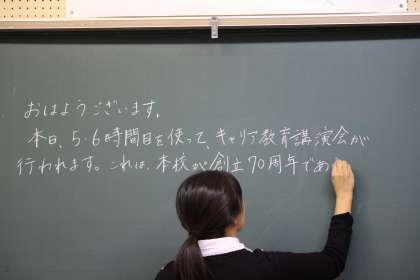 おはようございます。
本日、5・6時間目を使って、キャリア教育講演会が
行われます。これは、本校が創立70周年であ